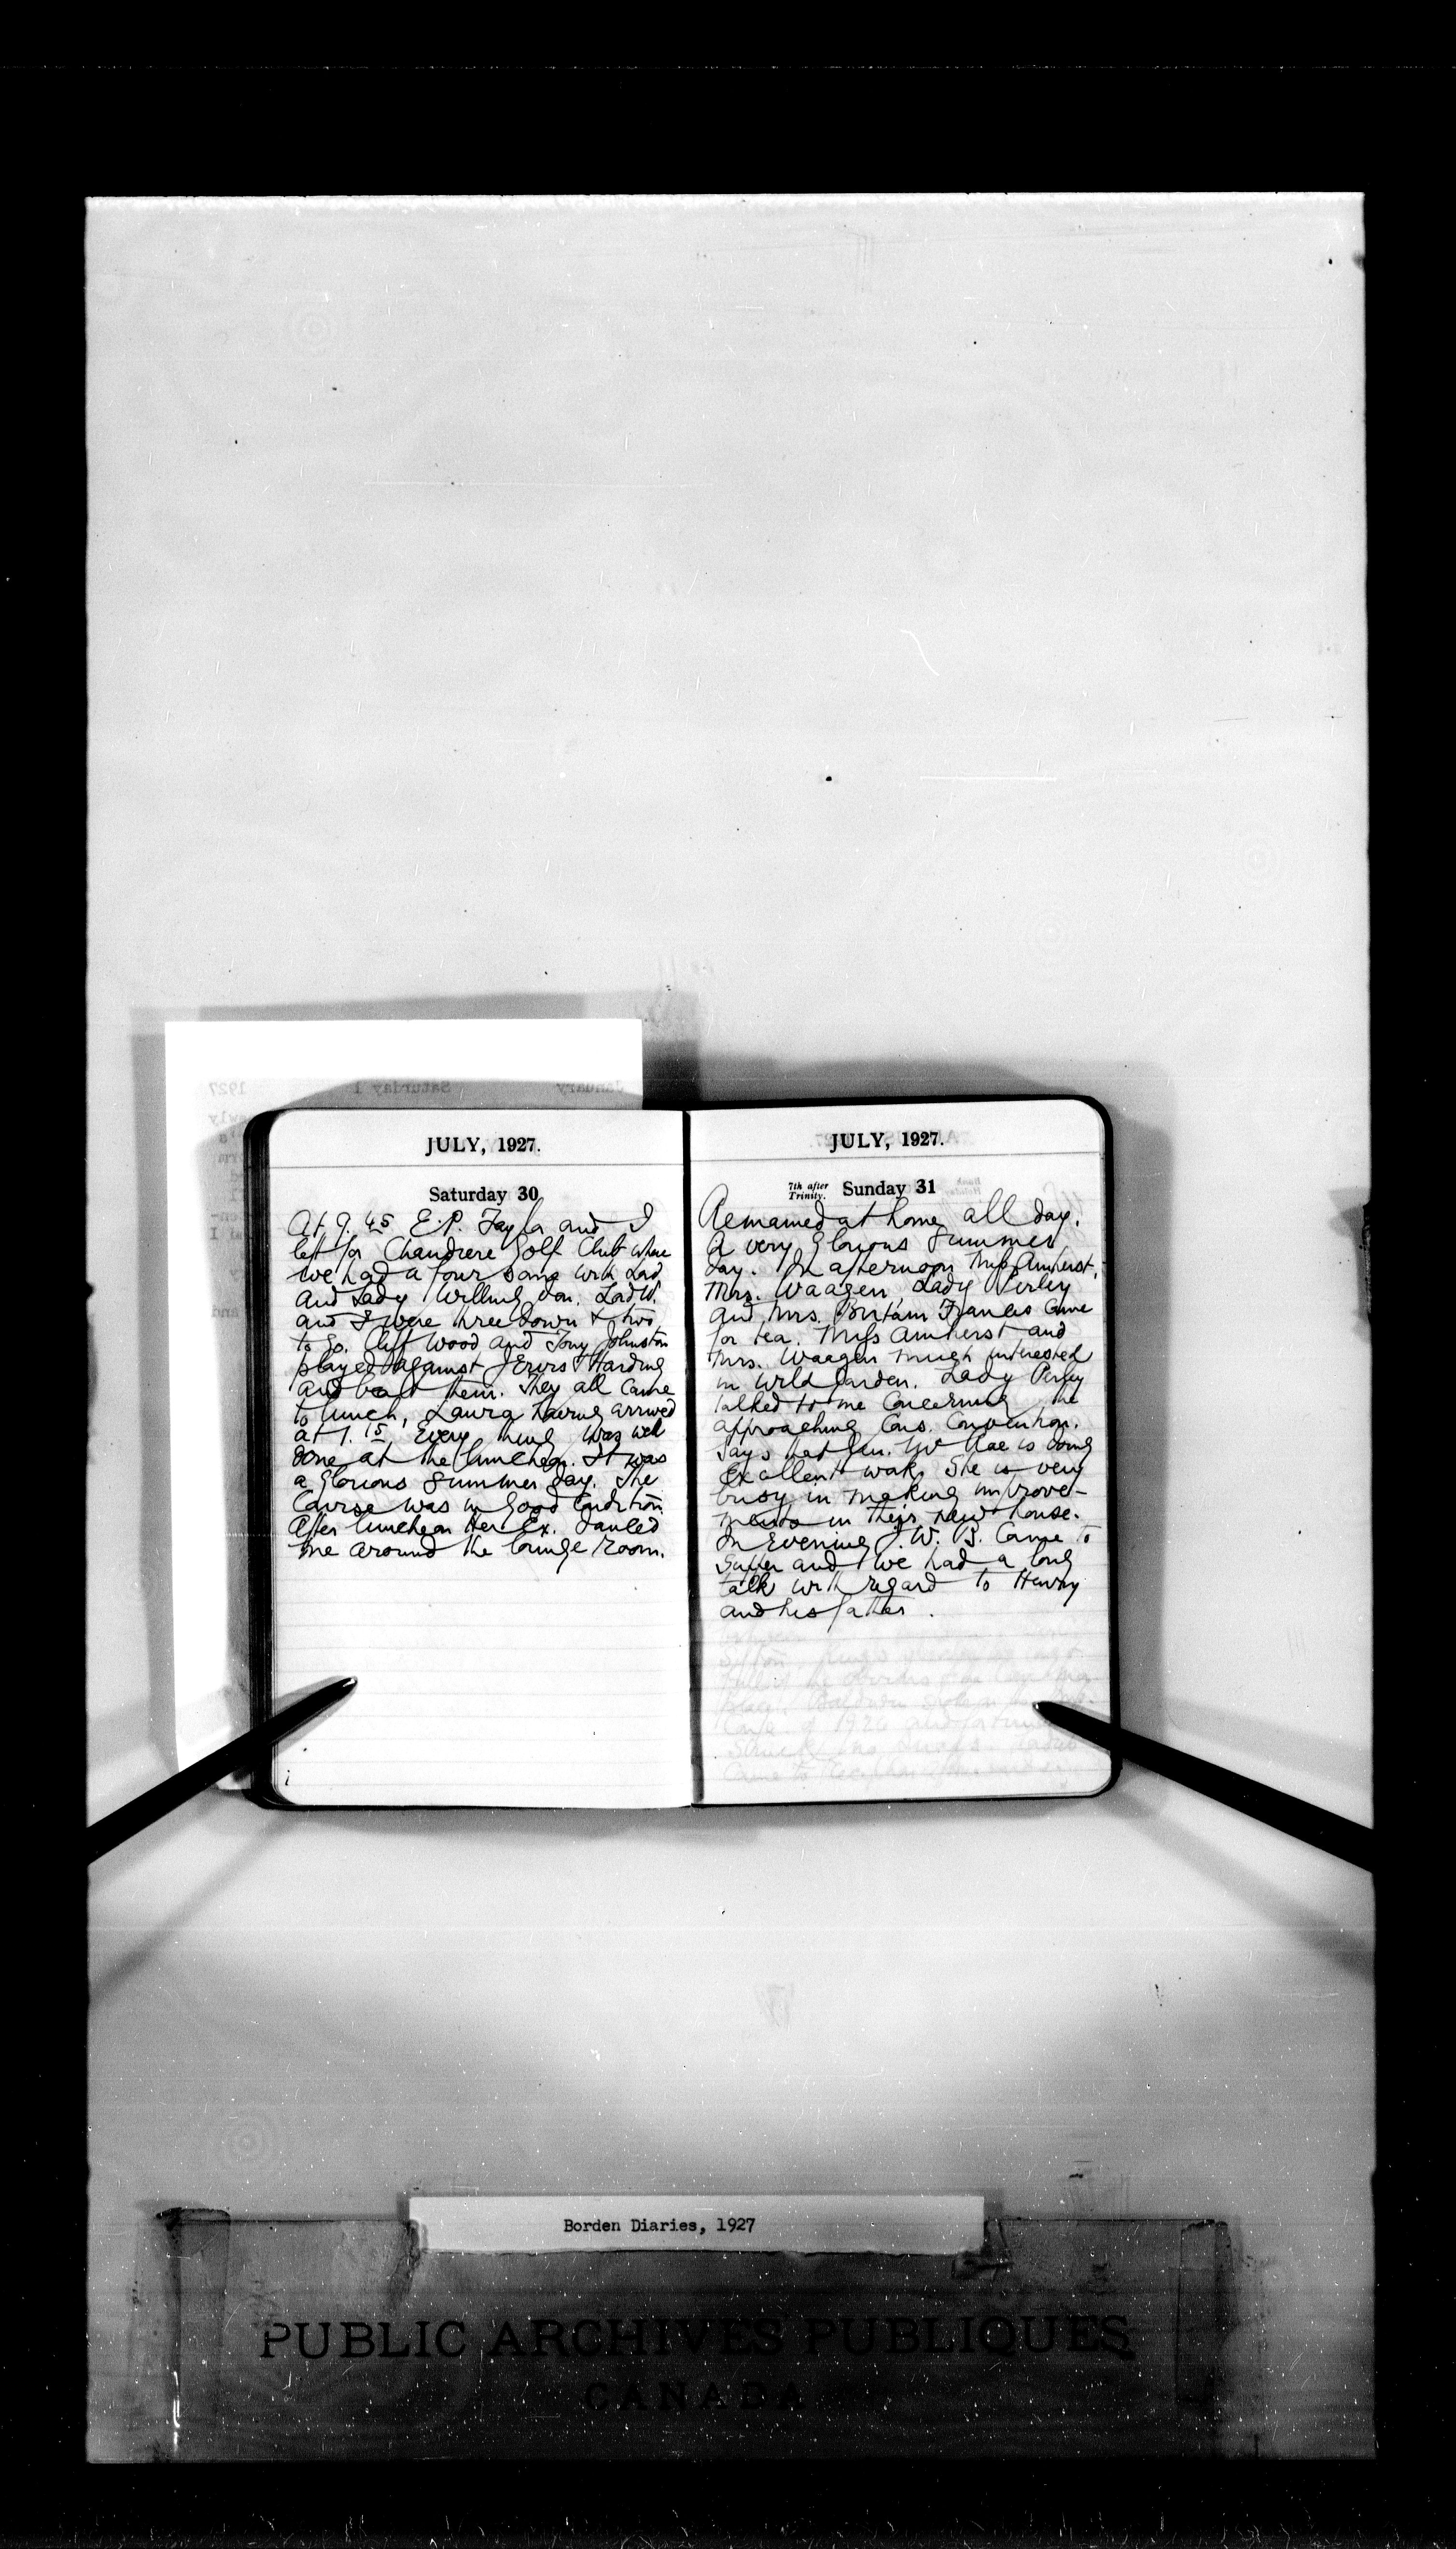 JULY, 1927.
Saturday 30
At 9.45 E.P. Taylor and I
left for Chaudiere Golf Club where
we had a four some with Lord
and Lady Willingdon. Lord W.
and I were three down & two
to go. Cliff Wood and Tony Johnston
played against Jervis Harding
and beat them. They all came
to lunch, Laura having arrived
at 1.15 Every thing was well
done at the luncheon. It was
a glorious summer day. The
Course was in good Condition.
After luncheon Her Ex. danced
me around the lounge room.
JULY, 1927.
7th after Trinity. Sunday 31
Remained at home all day.
A very glorious summer
day. In afternoon Miss Amherst,
Mrs. Waagen Lady Perley
and Mrs. Britain Francis came
for tea. Miss Amherst and
Mrs. Waagen much interested
in wild garden. Lady Perley
talked to me Concerning the
approaching Cons. Convention.
Says that Gen. McRae is doing
excellent work. She is very
busy in making improve-
ments in their new house.
In Evening J.W.B. Came to
supper and we had a long
talk with regard to Henry
and his father.
Borden Diaries, 1927
PUBLIC ARCHIVES PUBLIQUES
CANADA